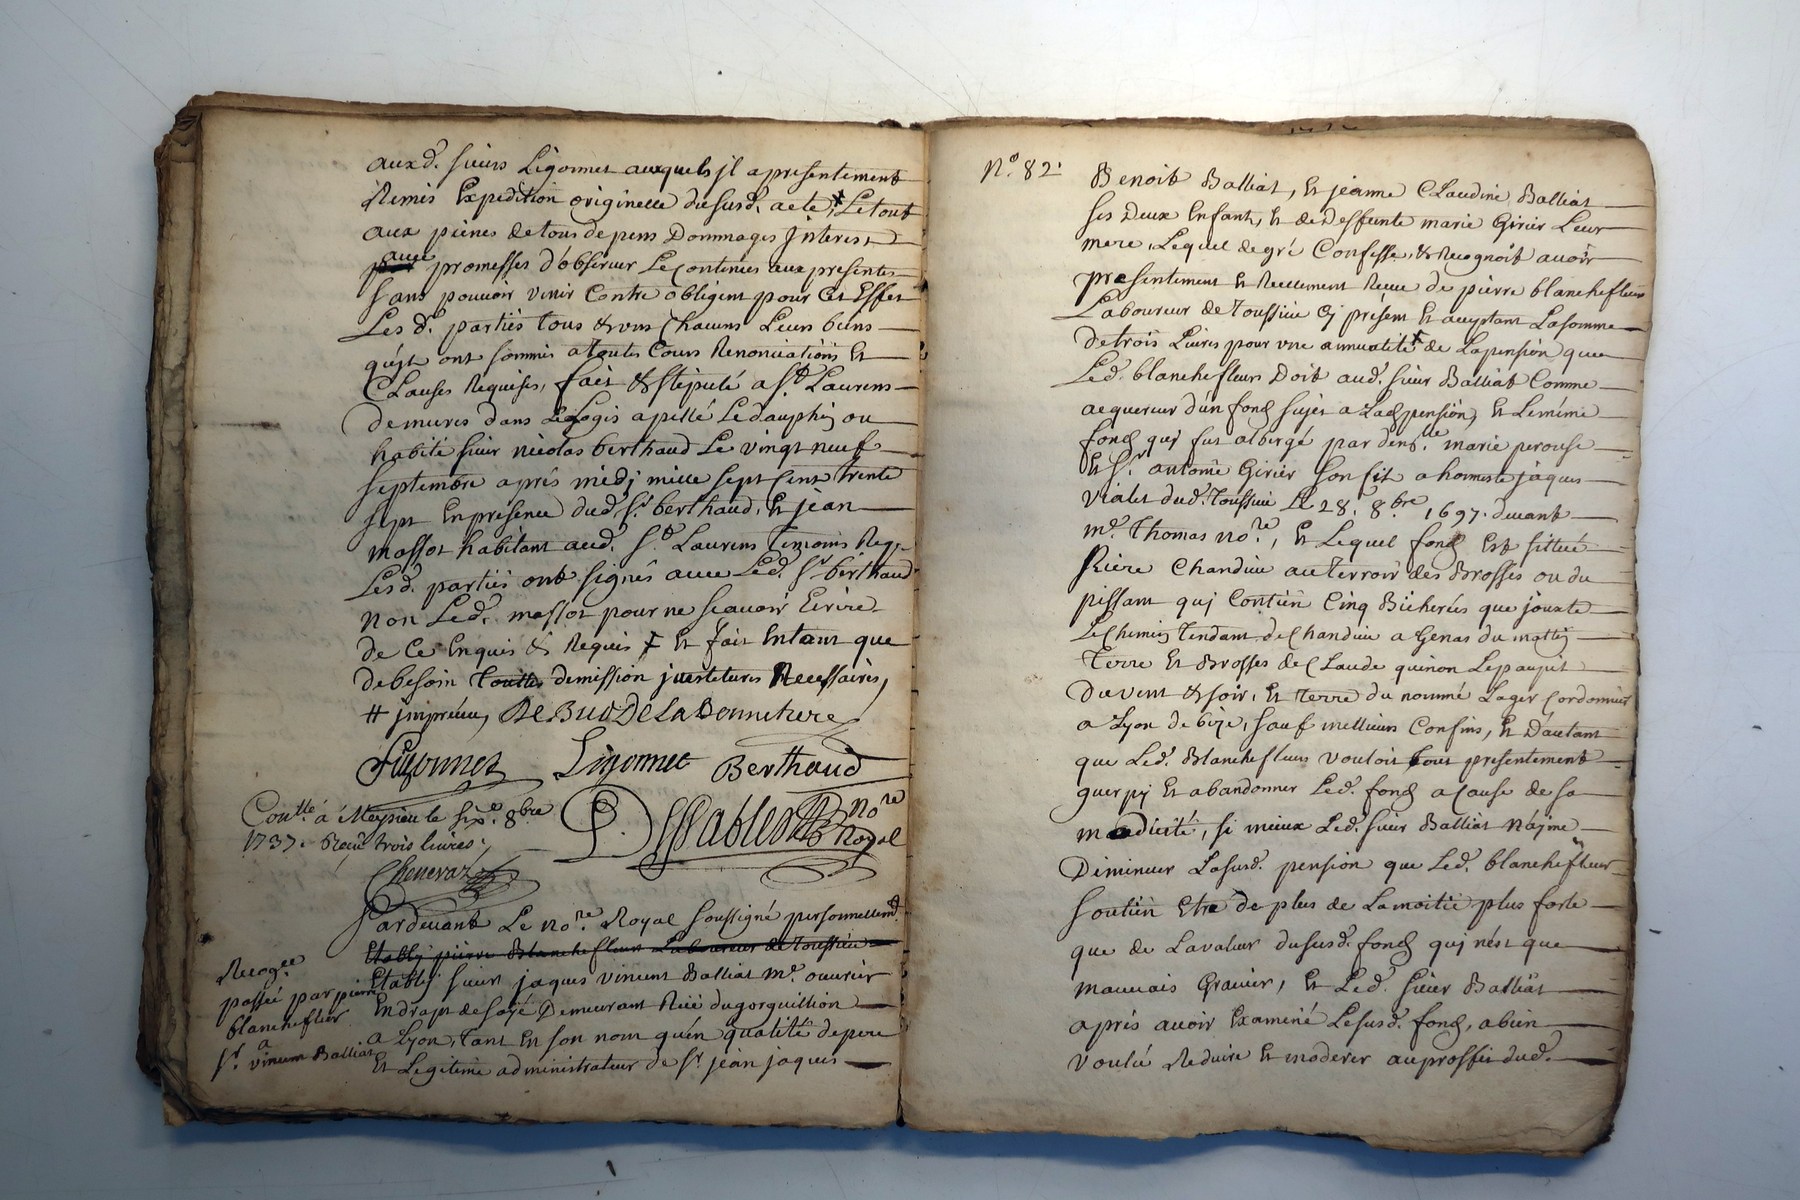 auxd. sieurs Ligonnet auxquels jl a presentement
Remis Expedition originelle dususd. acte, Le tout
aux peines de tous depens Dommages Interest
avec promesses d'observer Le Contenus aux presentes
sans pouvoir venir Contre obligent pour Cet Effet
Les d. parties tous & uns Chacuns Leurs biens
qu'jls ont soumis a toutes Cours Renonciations Et
Clauses Requises, fait & stipulé a St. Laurens
demures dans Le Logis apellé Ledauphin ou
habite sieur nicolas berthaud Le vingt neuf
septembre aprés midj mille sept Cens trente
sept En presence dud. sr. berthaud, Et jean
massot habitant aud. St. Laurens temoins Req.
Lesd. parties ont signés avec Led. sr. berthaud
non Led. massot pour ne scavoir Ecrire
de Ce Enquis & Requis Et fait Entant que
debesoin toutes demission jnvestitures Necessaires,
# jmpreuv, De Buo De La Bonneture
Ligonnet Ligonnet Berthaud
Contté. á Meyzieu le six. 8bre
1737. Recu trois livres,
nore Royal
Chenevaz
Pardevant Le nore. Royal soussigné personnellemt.
Etablj pierre Blanchefleur Laboureur de toussieu
Etablj sieur jaques vincent Balliat me. ouvrier
En drapt de soÿe Demeurant Rüe dugorguillion
a Lyon, tant En son nom qu'en qualité depere
Et Legitime administrateur de sr. jean jaques
Recogce.
passée par pierre
blanchefleur
a
sr. vincent Balliat
No. 82.
Benoit Balliat, Et jeanne Claudine Balliat
ses Deux Enfants, Et de Deffunte marie Girier Leur
mere, Lequel de gré Confesse, & Recognoit avoir
presentement Et Reellement Receu de pierre blanchefleur
Laboureur de toussieu Cy présent Et acceptant La somme
de trois Livres pour vne annualité de La pension que
Led. blanchefleurs Doit aud. sieur Balliat Comme
acquereur d'un fond sujet a Lad. pension, Et Lemême
fond quj fut albergé par demlle. marie perouse
Et sr. antoine Girier son fils a honneste jaques
vialet dud. toussieu Le 28. 8bre. 1697. devant
me. Thomas nore., Et Lequel fond Est sittué
Riere Chandieu au terroir des Brosses ou du
pissant quj Contien Cinq Bicherées que jouxte
Le Chemin tendant de Chandieu a Genas du mattin
terre Et Brosses de Claude quinon
Du vent & soir, Et terre du nommé Lager Cordonnier
a Lyon de bize, sauf meilleurs Confins, Et D'autant
que Led. Blanchefleurs vouloit tout presentement
guerpj Et abandonner Led. fond a Cause de sa
modicité, si mieux Led. sieur Balliat N'ajme
Diminuer Lasusd. pension que Led. blanchefleur
soutien Etre de plus de La moitie plus forte
que de La valeur dususd. fond quj n'est que
mauvais Gravier, Et Led. sieur Balliat
aprés avoir Examiné Lesusd. fond, a bien
voulu Reduire Et moderer au proffit dud.